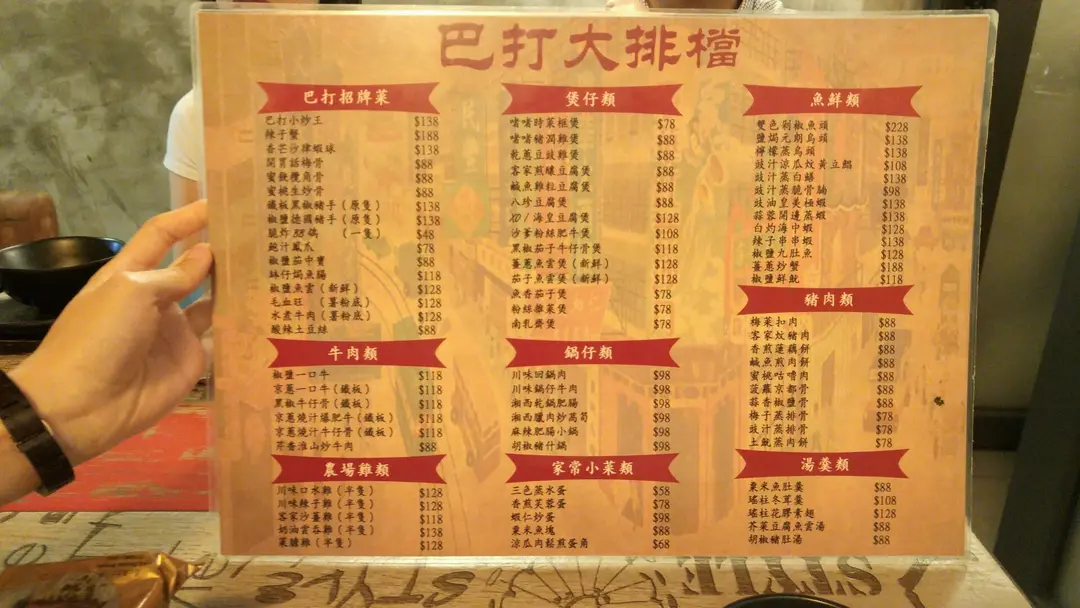 巴打大排檔
巴打招牌菜
巴打小炒王 $138
辣子蟹 $188
香芒沙律蝦球 $138
開胃話梅骨 $88
蜜餞欖角骨 $88
蜜桃生炒骨 $88
鐵板黑椒豬手（原隻） $138
椒鹽德國豬手（原隻） $138
脆炸BB鴿 （一隻） $48
鮑汁鳳爪 $78
椒鹽茄中寶 $88
砵仔焗魚腸 $118
椒鹽魚雲（新鮮） $128
毛血旺 （薯粉底） $128
水煮牛肉（薯粉底） $128
酸辣土豆絲 $88
牛肉類
椒鹽一口牛 $118
京蔥一口牛（鐵板） $118
黑椒牛仔骨（鐵板） $118
京蔥燒汁爆肥牛（鐵板） $118
京蔥燒汁牛仔骨（鐵板） $118
芹香淮山炒牛肉 $88
農場雞類
川味口水雞（半隻） $128
川味辣子雞（半隻） $128
客家沙薑雞（半隻） $118
奶油雲吞雞（半隻） $138
菜膽雞（半隻） $128
煲仔類
啫啫時菜粄煲 $78
啫啫豬潤雞煲 $88
乾蔥豆豉雞煲 $88
客家煎釀豆腐煲 $88
鹹魚雞粒豆腐煲 $88
八珍豆腐煲 $88
XO/海皇豆腐煲 $128
沙爹粉絲肥牛煲 $108
黑椒茄子牛仔骨煲 $118
薑蔥魚雲煲（新鮮） $128
茄子魚雲煲（新鮮） $128
魚香茄子煲 $78
粉絲雜菜煲 $78
南乳齋煲 $78
鍋仔類
川味回鍋肉 $98
川味鍋仔牛肉 $98
湘西乾鍋肥腸 $98
湘西臘肉炒萵筍 $98
麻辣肥腸小鍋 $98
胡椒豬什鍋 $98
家常小菜類
三色蒸水蛋 $58
香煎芙蓉蛋 $78
蝦仁炒蛋 $98
粟米魚塊 $88
涼瓜肉鬆煎蛋角 $68
魚鮮類
雙色剁椒魚頭 $228
鹽焗元朗烏頭 $138
檸檬蒸烏頭 $138
豉汁涼瓜炆黃立鯧 $108
豉汁蒸白鱔 $138
豉汁蒸脆骨腩 $98
豉油皇美極蝦 $138
蒜蓉開邊蒸蝦 $138
白灼海中蝦 $128
辣子串串蝦 $138
椒鹽九肚魚 $128
薑蔥炒蟹 $188
椒鹽鮮魷 $118
豬肉類
梅菜扣肉 $88
客家炆豬肉 $88
香煎蓮藕餅 $88
鹹魚煎肉餅 $88
蜜桃咕嚕肉 $88
菠蘿京都骨 $88
蒜香椒鹽骨 $88
梅子蒸排骨 $78
豉汁蒸排骨 $78
土魷蒸肉餅 $78
湯羹類
粟米魚肚羹 $88
瑤柱冬茸羹 $108
瑤柱花膠素翅 $128
芥菜豆腐魚雲湯 $88
胡椒豬肚湯 $88
STYLE
STYLE